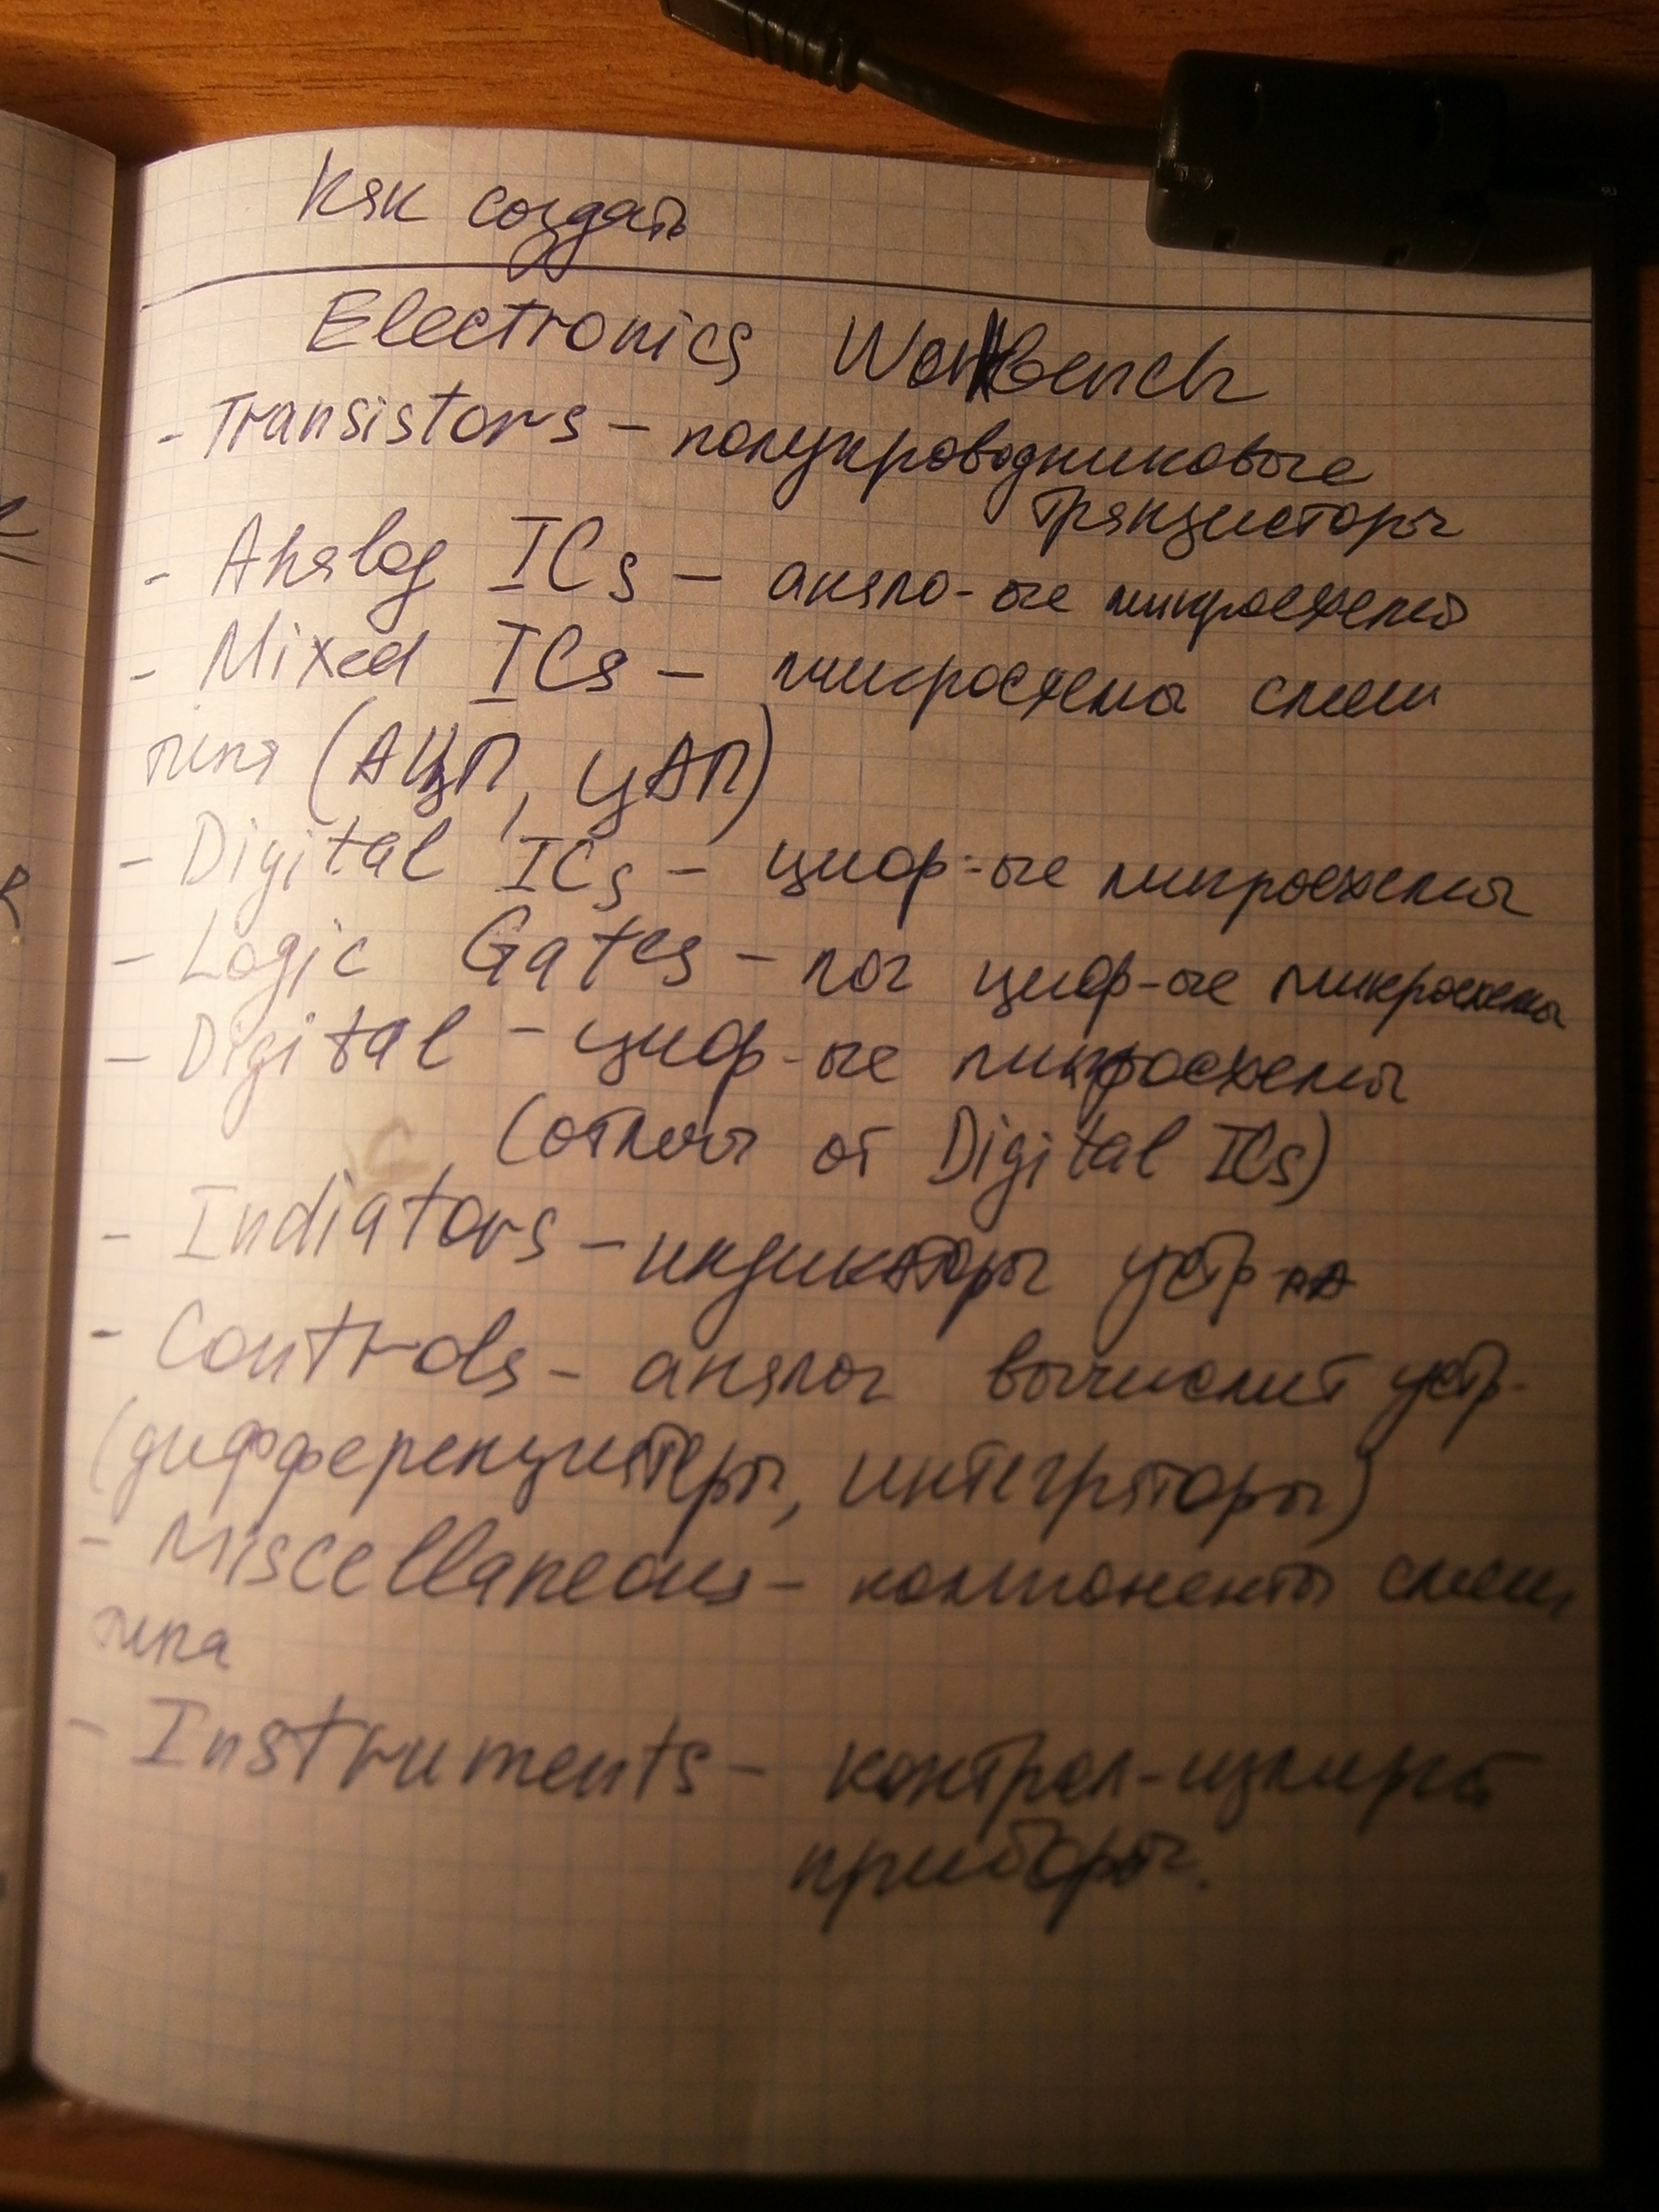 Как создать
Electronics Workbench
- Transistors – полупроводниковые
транцисторы
- Analog ICs – анало-ые микросхемы
- Mixed ICs – микросхемы смеш
типа (АЦП, ЦАП)
- Digital ICs – цифр-ые микросхемы
- Logic Gates – лог цифр-ые микросхемы
- Digital – цифр-ые микросхемы
(отличы от Digital ICs)
- Indiators – индикаторы устр-ва
- Controls – аналог вычислит устр-
(дифференцитеры, интеграторы)
- Miscellaneous – компоненты смеш,
типа
- Instruments – контрол-измирит
приборы.